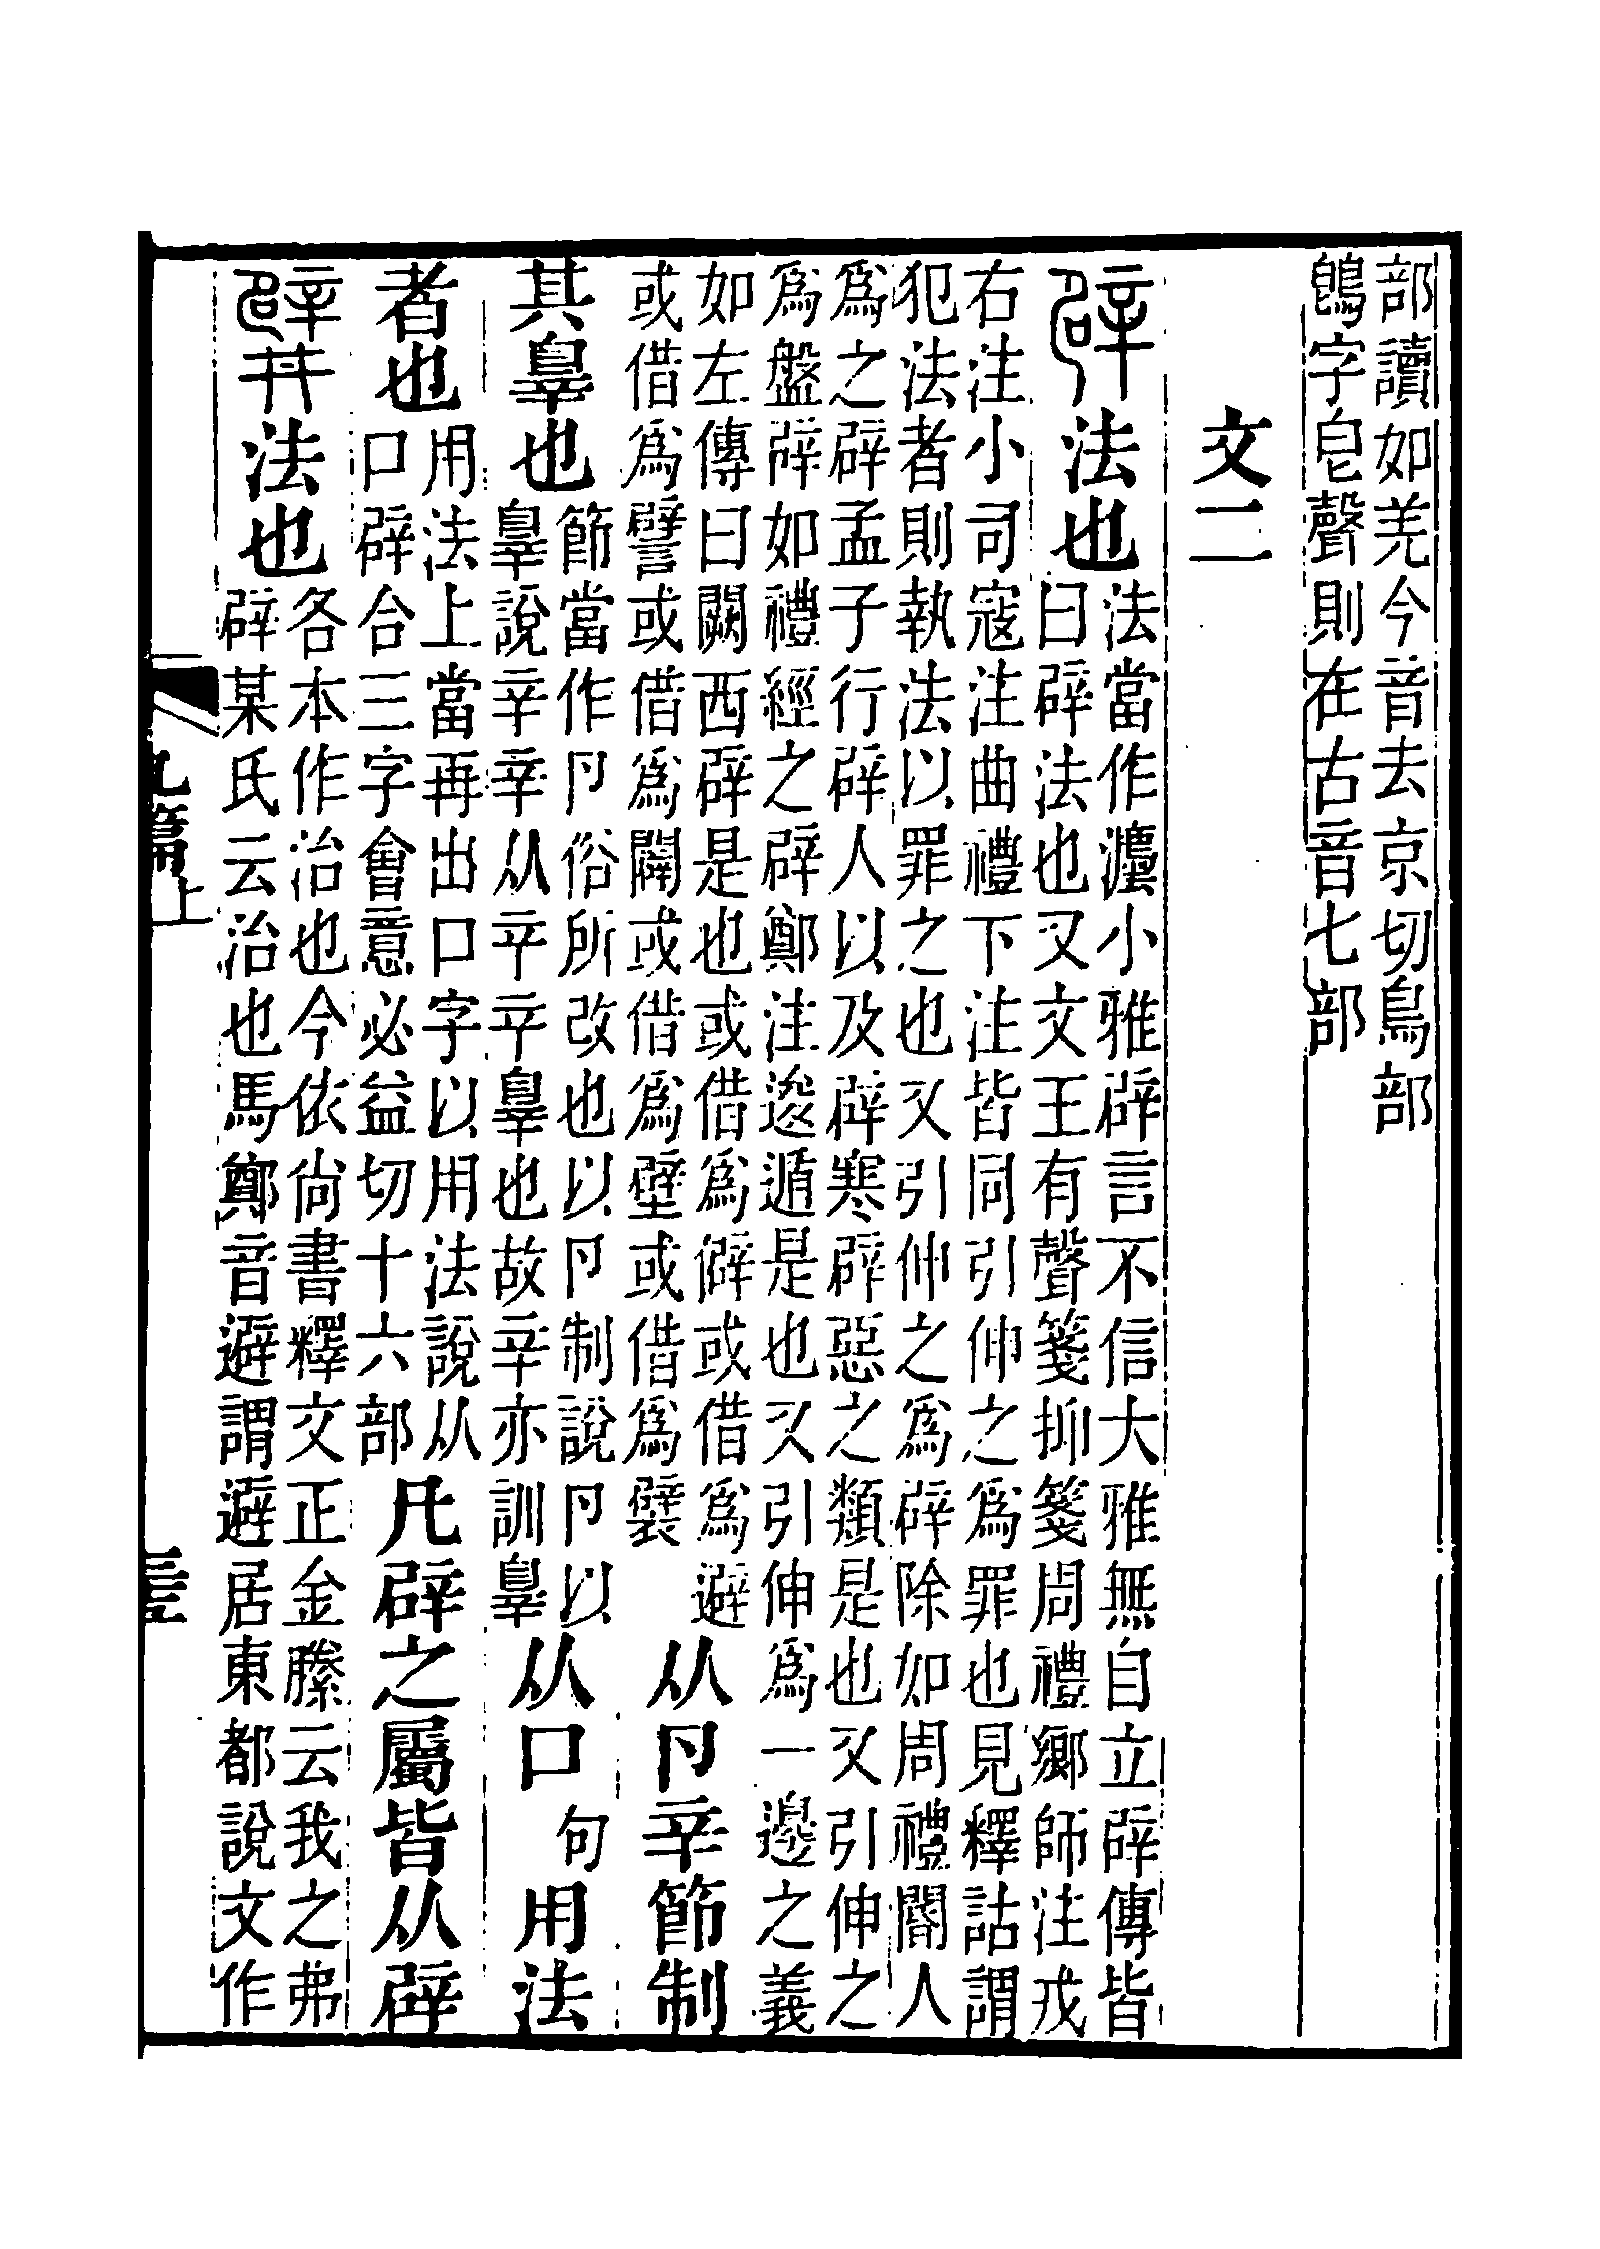 部讀如羌今音去京切鳥部
鵖字皀聲則在古音七部
文二
辟法也
法當作灋小雅辟言不信大雅無自立辟傳皆
曰辟法也又文王有聲箋抑箋周禮鄉師注戎
右注小司寇注曲禮下注皆同引伸之爲罪也見釋詁謂
犯法者則執法以罪之也又引伸之爲辟除如周禮閽人
爲之辟孟子行辟人以及辟寒辟惡之類是也又引伸之
爲盤辟如禮經之辟鄭注逡遁是也又引伸爲一邊之義
如左傳曰闕西辟是也或借爲僻或借爲避
或借爲譬或借爲闢或借爲壁或借爲襞
从卩辛節制
其辠也
節當作卩俗所改也以卩制說卩以
辠說辛辛从䇂䇂辠也故辛亦訓辠
从口
句
用法
者也
用法上當再出口字以用法說从
口辟合三字會意必益切十六部
凡辟之屬皆从辟
𨐨法也
各本作治也今依尚書釋文正金縢云我之弗
辟某氏云治也馬鄭音避謂避居東都說文作
九篇上